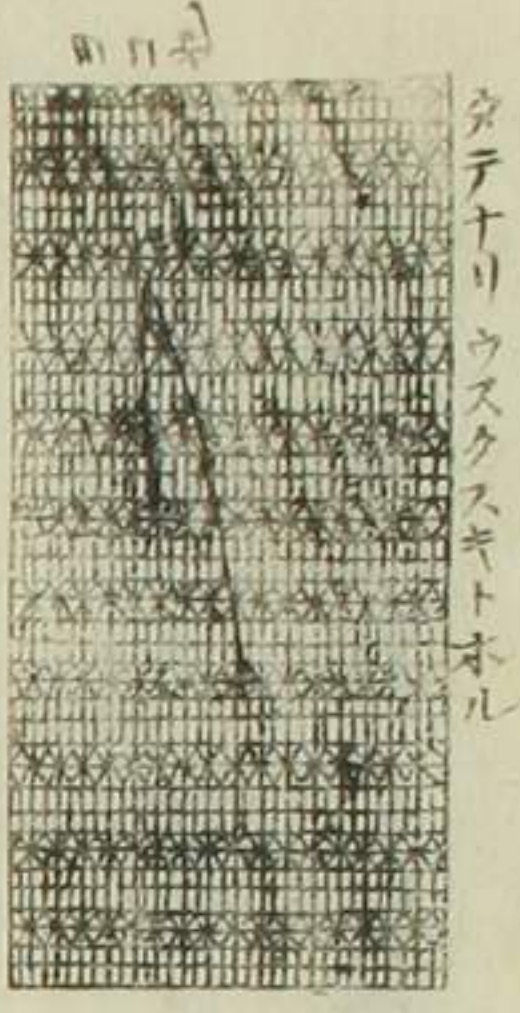 穴テナリ ウスクスキトホル